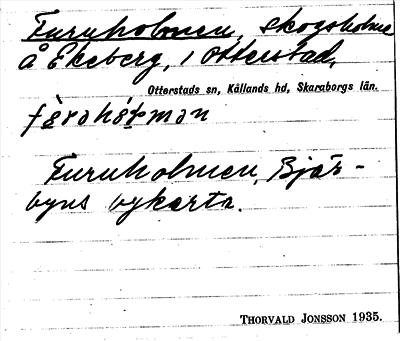 Furuholmen, skogsholme
å Ekeberg, i Otterstad,
Otterstads sn, Kållands hd, Skaraborgs län.
Furuholmen, Bjär-
byns bykarta.
THORVALD JONSSON 1935.